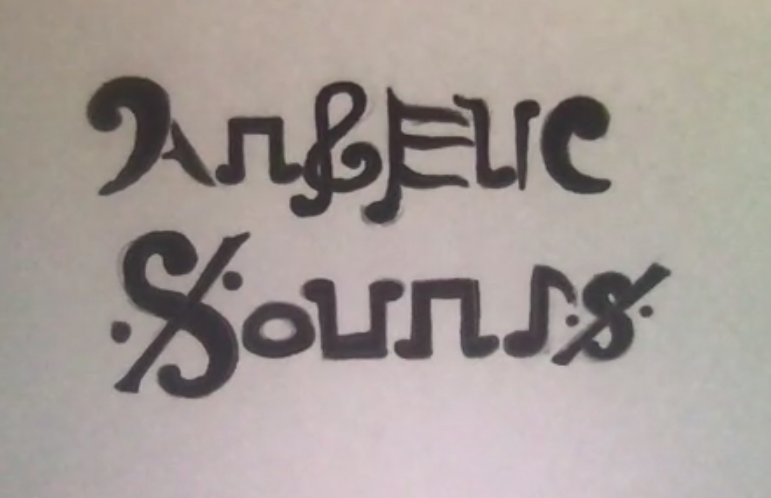 Angelic
Sounds